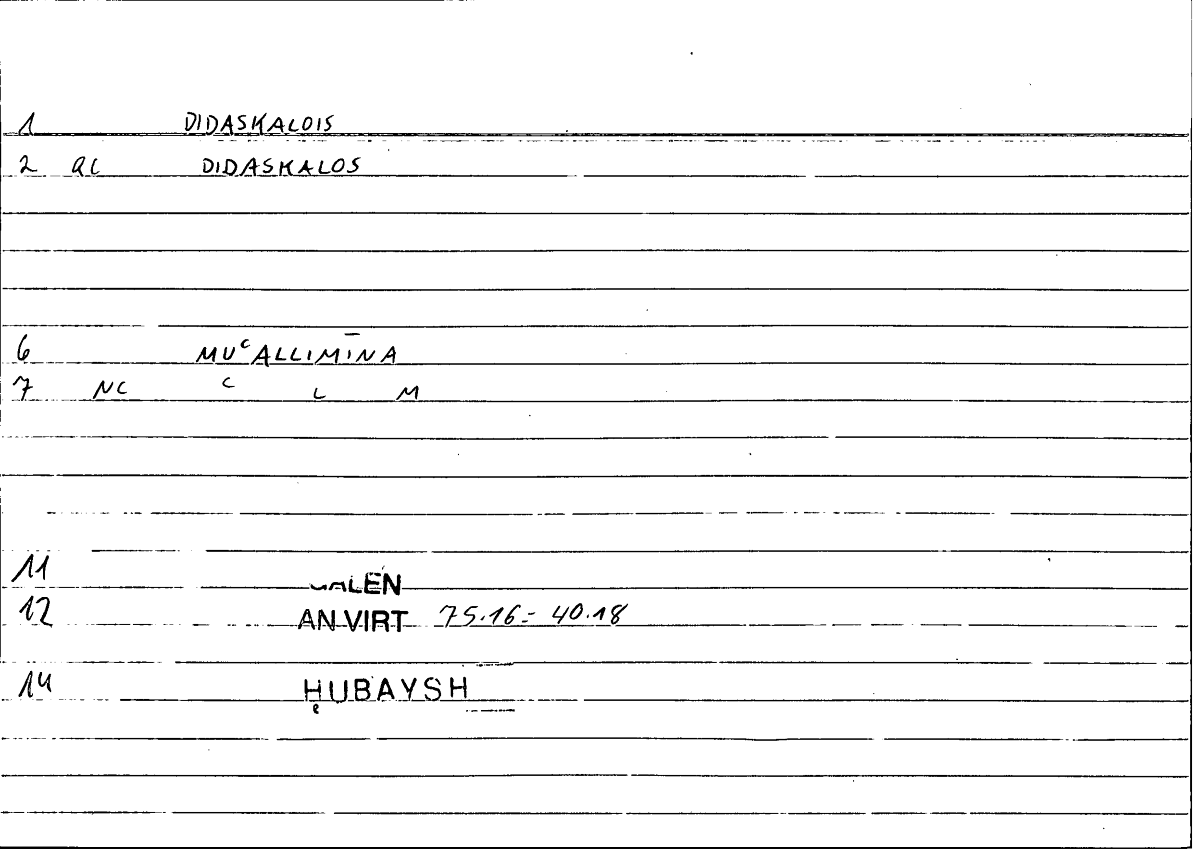 1 DIDASKALOIS
2 QC DIDASKALOS
6 MUᶜALLIMĪNA
7 NC ᶜ L M
11 GALEN
12 AN.VIRT 75.16 = 40.18
14 ḤUBAYSH